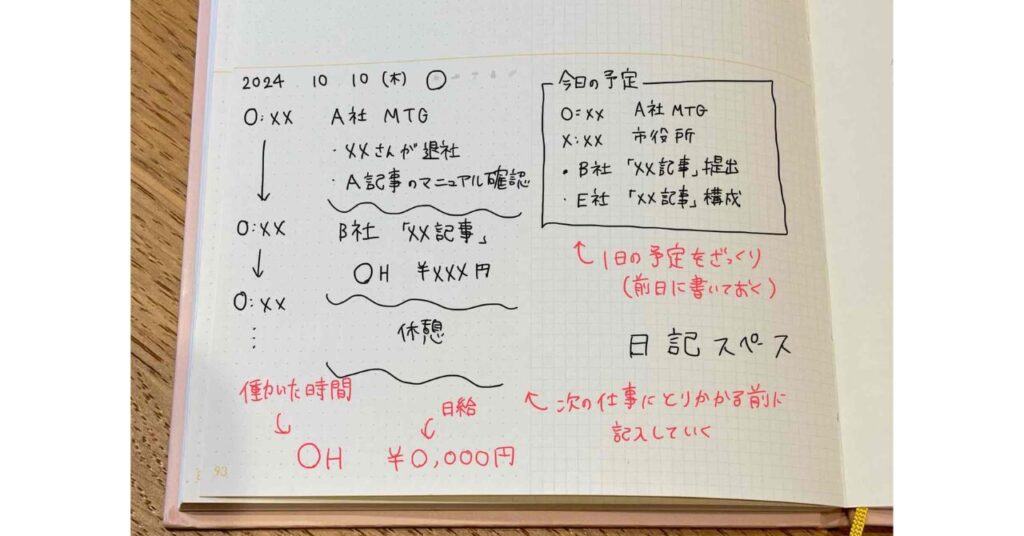 2024 10 10 (木) ○
○:XX A社 MTG
・XXさんが退社
・A記事のマニュアル確認
○:XX B社 「XX記事」
○H ¥XXX円
○:XX
休憩
働いた時間
日給
○H ¥○,000円
93
今日の予定
○:XX A社 MTG
X:XX 市役所
・B社 「XX記事」提出
・E社 「XX記事」構成
1日の予定をざっくり
(前日に書いておく)
日記スペース
次の仕事にとりかかる前に
記入していく